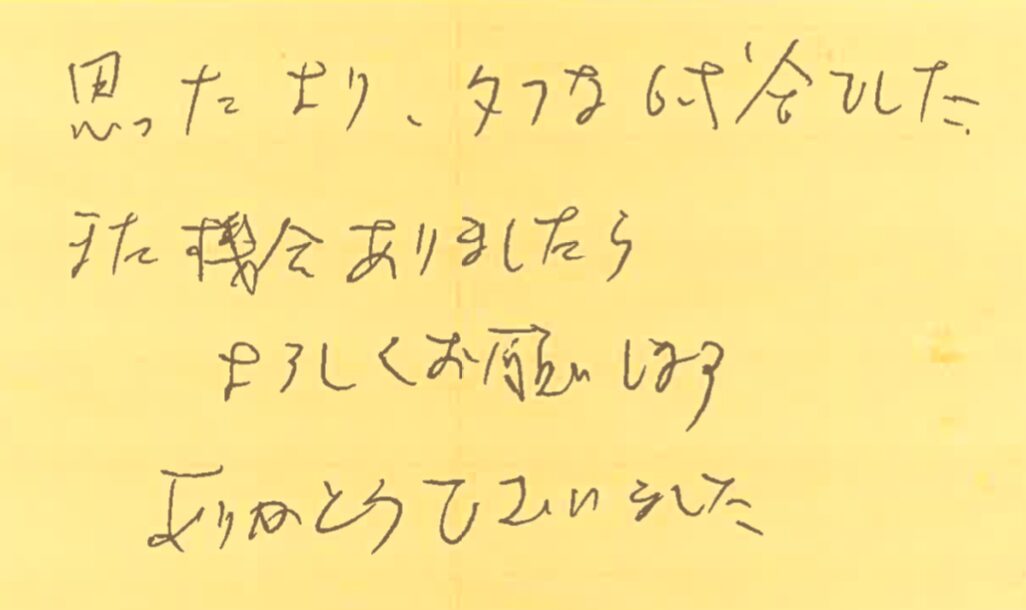 思ったより、タフな試合でした
また機会ありましたら
よろしくお願いします
ありがとうございました